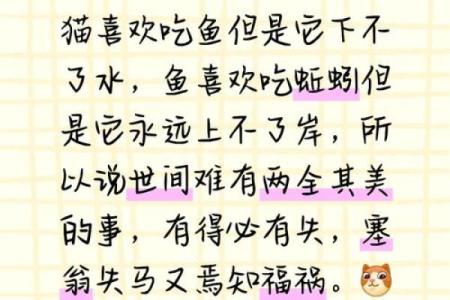 猫喜欢吃鱼但是它下不
了水，鱼喜欢吃蚯蚓但
是它永远上不了岸，所
以说世间难有两全其美
的事，有得必有失，塞
翁失马又焉知福祸。